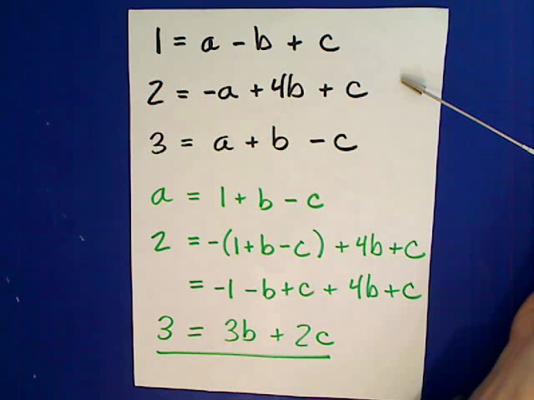 1 = a - b + c
2 = -a + 4b + c
3 = a + b - c
a = 1 + b - c
2 = -(1+b-c) + 4b+c
= -1 -b+c + 4b+c
3 = 3b + 2c